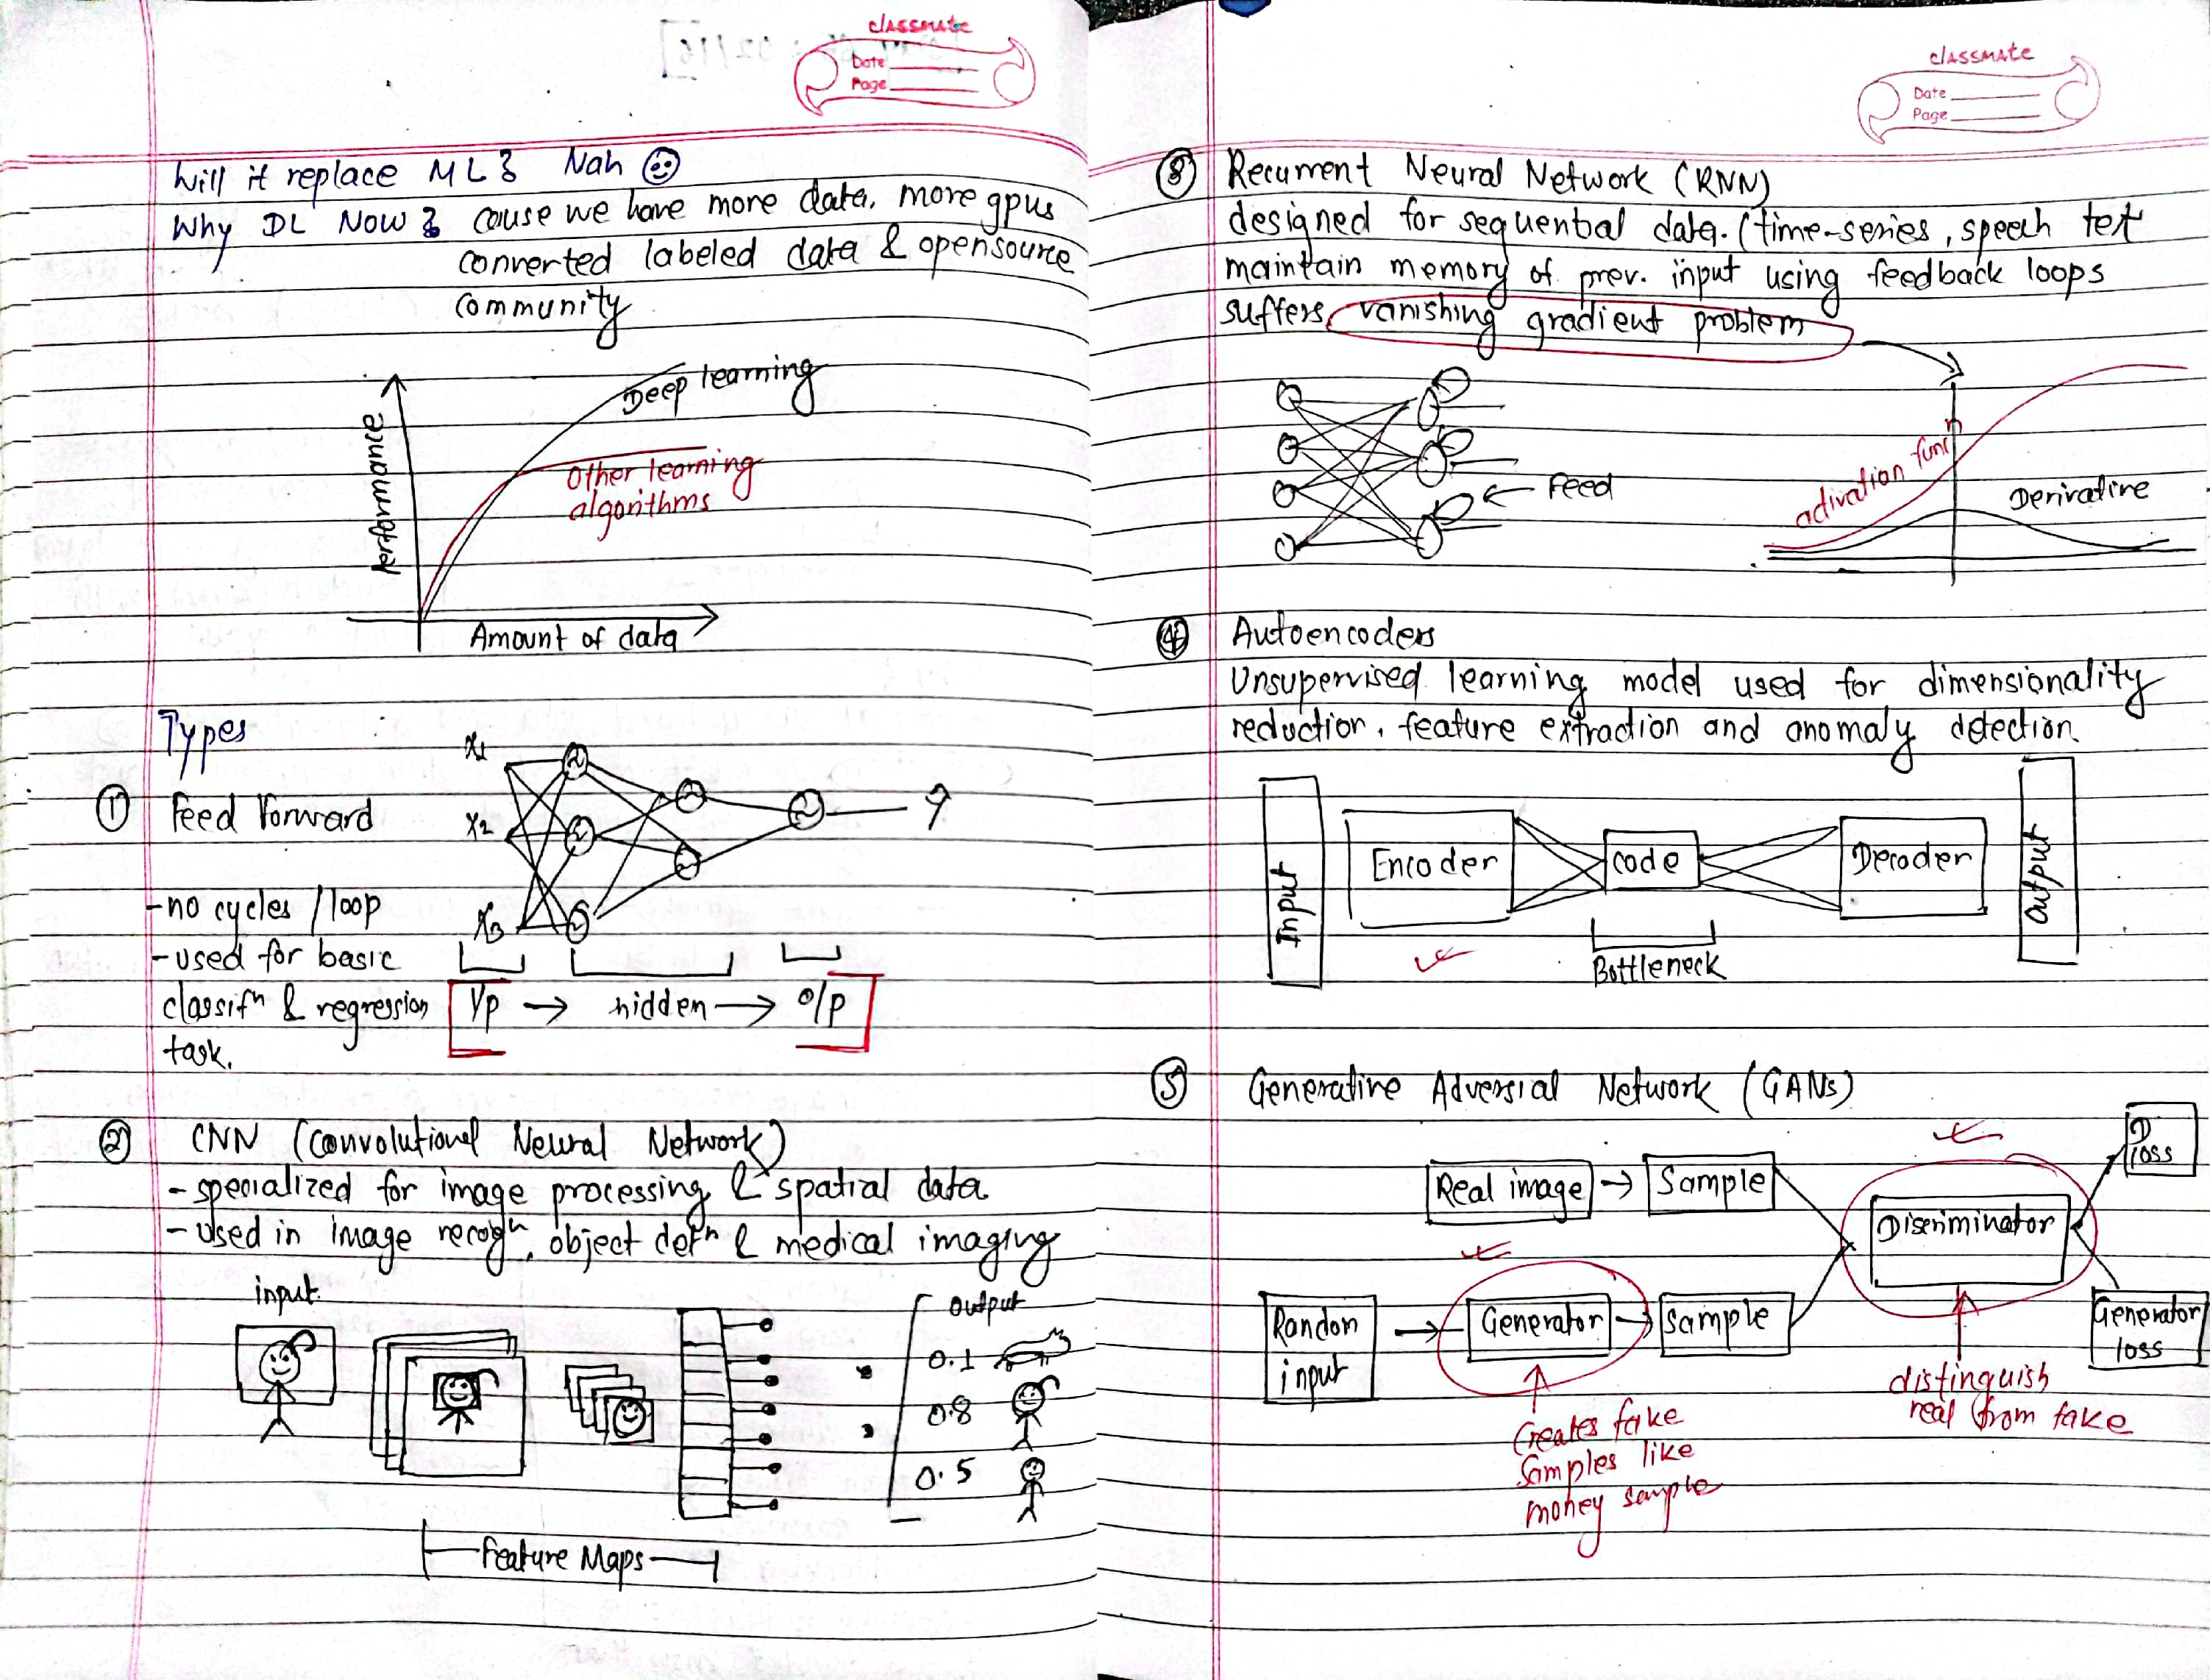 classmate
Date
Page
Will it replace ML? Nah
Why DL Now? cause we have more data, more gpus
converted labeled data & opensource
community
Performance
Deep learning
Other learning
algorithms
Amount of data
Types
① Feed Forward
x1
x2
x3
ŷ
-no cycles / loop
-used for basic
classifⁿ & regression
task.
I/p → hidden → o/p
② CNN (Convolutional Neural Network)
- specialized for image processing & spatial data
- used in image recogⁿ, object detⁿ & medical imaging
input
output
0.1
0.8
0.5
Feature Maps
classmate
Date
Page
③ Recurrent Neural Network (RNN)
designed for sequential data. (time-series, speech text
maintain memory of prev. input using feedback loops
suffers vanishing gradient problem
← Feed
activation funcⁿ
Derivative
④ Autoencoders
Unsupervised learning model used for dimensionality
reduction, feature extraction and anomaly detection
Input
Encoder
code
Decoder
Output
Bottleneck
⑤ Generative Adversial Network (GANs)
Real image → Sample
D loss
Discriminator
Random input → Generator → Sample
Generator loss
Creates fake
Samples like
money sample
distinguish
real from fake